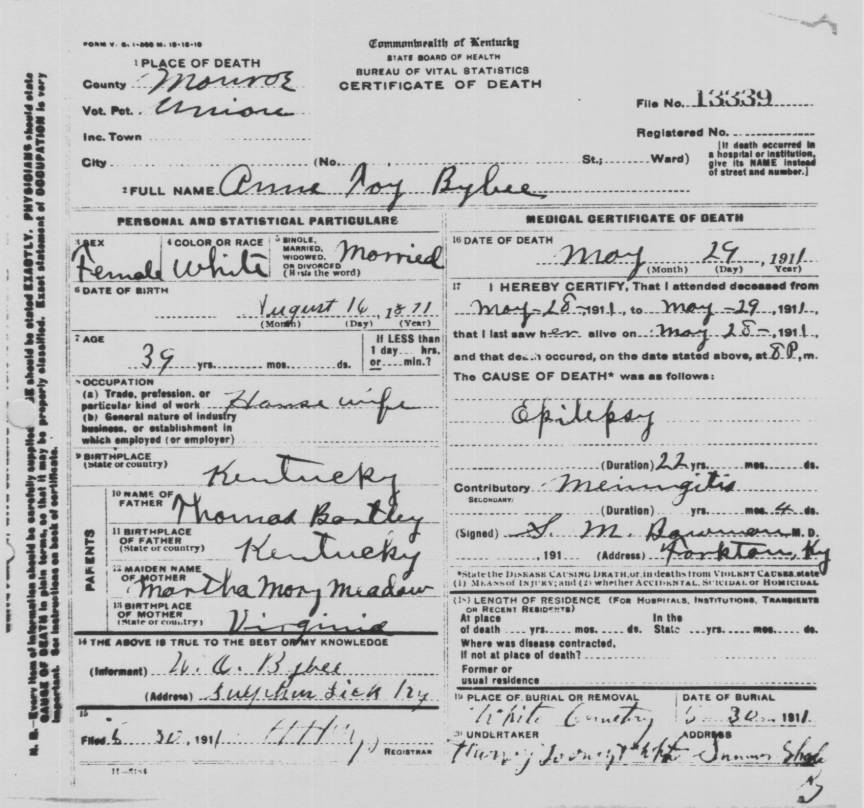 FORM V. S. 1-
Commonwealth of Kentucky
STATE BOARD OF HEALTH
BUREAU OF VITAL STATISTICS
CERTIFICATE OF DEATH
1 PLACE OF DEATH
County Monroe
Vot. Pct. Union
Inc. Town
City (No. St.; Ward)
File No. 13339
Registered No.
[If death occurred in
a hospital or institution,
give its NAME instead
of street and number.]
2 FULL NAME Anna Foy Bybee
PERSONAL AND STATISTICAL PARTICULARS
3 SEX
Female
4 COLOR OR RACE
White
5 SINGLE,
MARRIED,
WIDOWED,
OR DIVORCED
(Write the word)
Married
6 DATE OF BIRTH
August 16, 1871
(Month) (Day) (Year)
7 AGE
39 yrs. mos. ds.
If LESS than
1 day.... hrs.
or.....min.?
8 OCCUPATION
(a) Trade, profession, or
particular kind of work House wife
(b) General nature of industry
business, or establishment in
which employed (or employer)
9 BIRTHPLACE
(State or country)
Kentucky
PARENTS
10 NAME OF
FATHER
Thomas Bartley
11 BIRTHPLACE
OF FATHER
(State or country)
Kentucky
12 MAIDEN NAME
OF MOTHER
Martha Mary Meadow
13 BIRTHPLACE
OF MOTHER
(State or country)
Virginia
14 THE ABOVE IS TRUE TO THE BEST OF MY KNOWLEDGE
(Informant) W. A. Bybee
(Address) Sulphur Lick Ky
15
Filed 5 30, 1911
REGISTRAR
MEDICAL CERTIFICATE OF DEATH
16 DATE OF DEATH
May 29, 1911
(Month) (Day) Year)
17 I HEREBY CERTIFY, That I attended deceased from
May-28-1911, to May-29, 1911,
that I last saw her alive on May 28-, 1911,
and that death occured, on the date stated above, at 8 P, m.
The CAUSE OF DEATH* was as follows:
Epilepsy
(Duration) 22 yrs. mos. ds.
Contributory Meningitis
SECONDARY:
(Duration) yrs. mos. 4 ds.
(Signed) S. M. Bowman, M. D.
, 191 (Address) Forkton, Ky
*State the DISEASE CAUSING DEATH, or, in deaths from VIOLENT CAUSES, state
(1) MEANS OF INJURY; and (2) whether ACCIDENTAL, SUICIDAL or HOMICIDAL
(18) LENGTH OF RESIDENCE (FOR HOSPITALS, INSTITUTIONS, TRANSIENTS
OR RECENT RESIDENTS)
At place In the
of death yrs. mos. ds. State yrs. mos. ds.
Where was disease contracted,
If not at place of death?
Former or
usual residence
19 PLACE OF BURIAL OR REMOVAL
White Cemetery
DATE OF BURIAL
5 30 1911
20 UNDERTAKER
ADDRESS
Summer Shade
Ky
N. B.—Every item of information should be carefully supplied. AGE should be stated EXACTLY. PHYSICIANS should state
CAUSE OF DEATH in plain terms, so that it may be properly classified. Exact statement of OCCUPATION is very
important. See instructions on back of certificate.